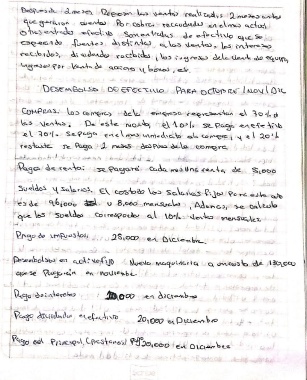 Después de 2 meses Representan las ventas realizadas 2 meses antes
que quedaron cuentas Por cobrar recaudadas en el mes actual
otras entradas efectivo son entradas de efectivo que se
esperan fuentes distintas a las ventas, los intereses
recibidos, dividendos recibidos, los ingresos de la venta de equipo,
ingresos por venta de acciones y bonos, etc.
DESEMBOLSO DE EFECTIVO PARA OCTUBRE / NOV / DIC
COMPRAS: las compras de la empresa representan el 70% d
las ventas, De este monto, el 10% se Paga en efectivo
el 70% se paga en el mes inmediato a la compra, y el 20%
restante se Paga 2 meses después de la compra
Pago de renta: se pagará cada mes una renta de 5,000
Sueldos y salarios. El costo de los salarios fijos para este año
es de 96,000 u 8,000 mensuales, Además, se calcula
que los sueldos corresponden al 10% ventas mensuales.
Pago de impuestos, 25,000 en Diciembre.
Desembolsos en activo fijo Nueva maquinaria a un costo de 130,000
que se Pagarán en noviembre
Pago de intereses 10,000 en diciembre
Pago dividendo en efectivo 20,000 en Diciembre
Pago del Principal (préstamos) 20,000 en Diciembre